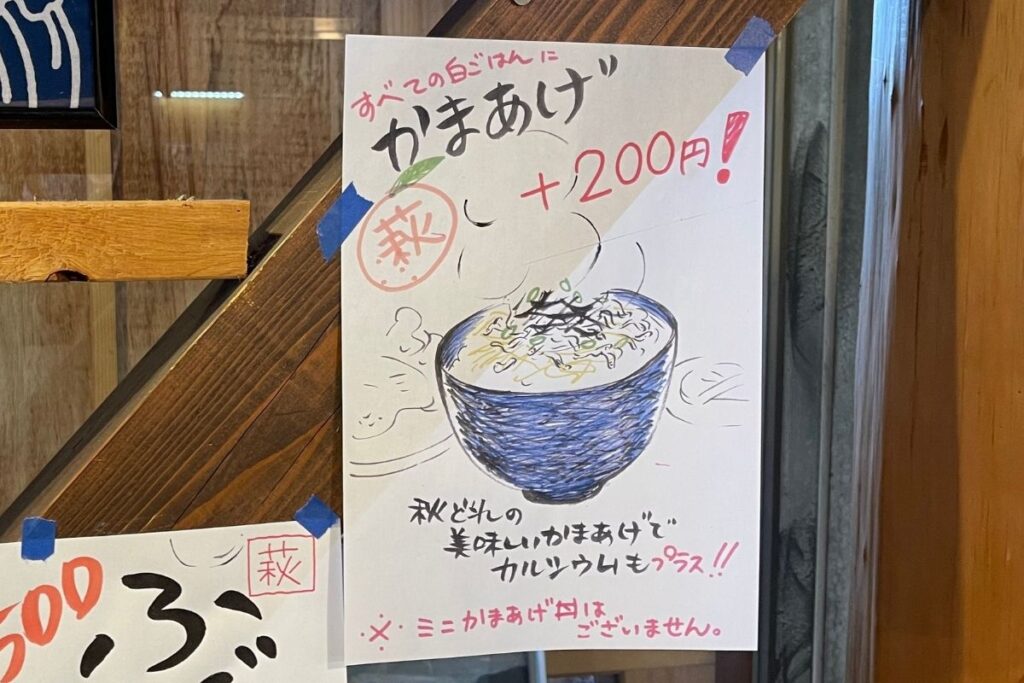 すべての白ごはんに
かまあげ
+200円!
萩
秋どれの
美味しいかまあげで
カルシウムもプラス!!
※ミニかまあげ丼は
ございません。
500
萩
ぶ